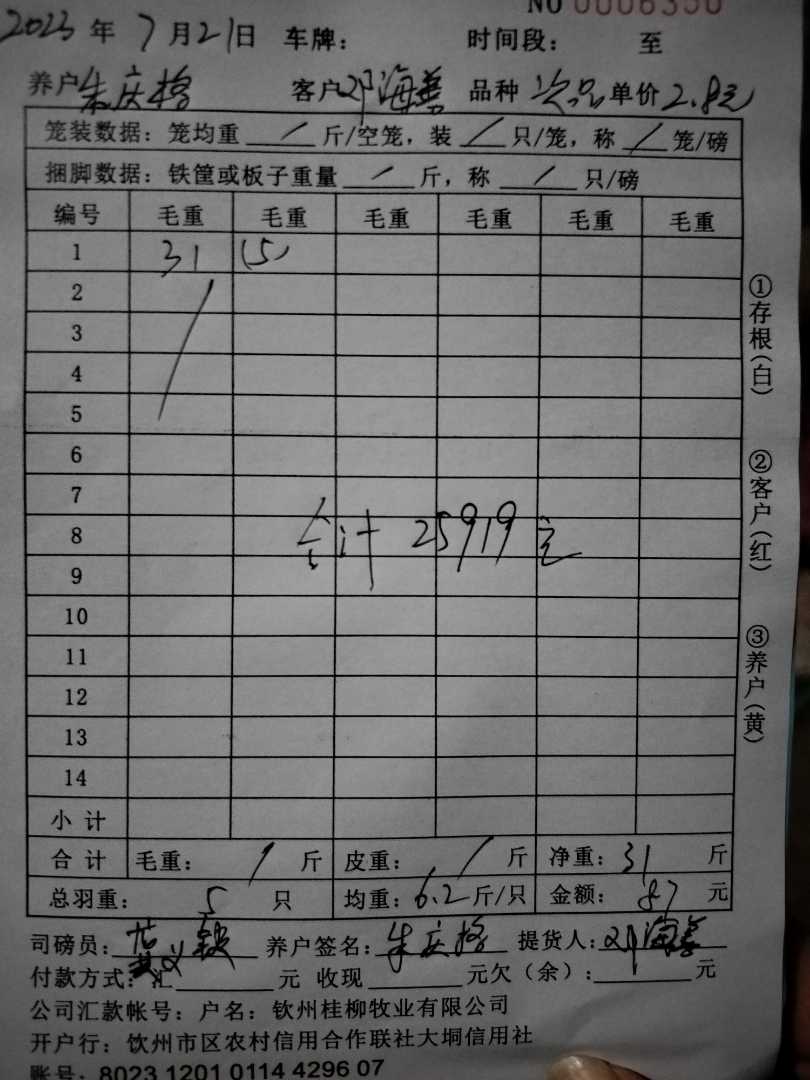 NO 0006350
2023年7月21日 车牌： 时间段： 至
养户 朱庆格 客户 邓海善 品种 次品 单价 2.8元
笼装数据：笼均重 / 斤/空笼，装 / 只/笼，称 / 笼/磅
捆脚数据：铁筐或板子重量 / 斤，称 / 只/磅
编号 毛重 毛重 毛重 毛重 毛重 毛重
1 31 (5)
2
3
4
5
6
7
8
合计 25919元
9
10
11
12
13
14
小计
合计 毛重： / 斤 皮重： / 斤 净重：31 斤
总羽重： 5 只 均重：6.2斤/只 金额：87 元
司磅员： 养户签名：朱庆格 提货人：邓海善
付款方式：汇 元 收现 元欠（余）： 元
公司汇款帐号：户名：钦州桂柳牧业有限公司
开户行：钦州市区农村信用合作联社大垌信用社
账号：8023 1201 0114 4296 07
①存根（白） ②客户（红） ③养户（黄）